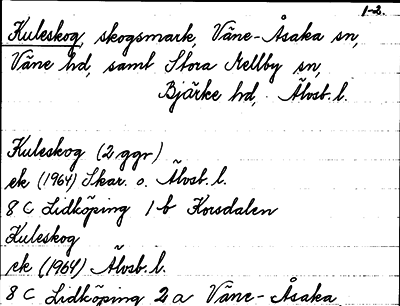 1-2.
Kuleskog, skogsmark, Väne-Åsaka sn,
Väne hd, samt Stora Mellby sn,
Bjärke hd, Älvsb. l.
Kuleskog (2 ggr)
ek (1964) Skar. o. Älvsb. l.
8 C Lidköping 1 b Korsdalen
Kuleskog
ek (1964) Älvsb. l.
8 C Lidköping 2 a Väne-Åsaka